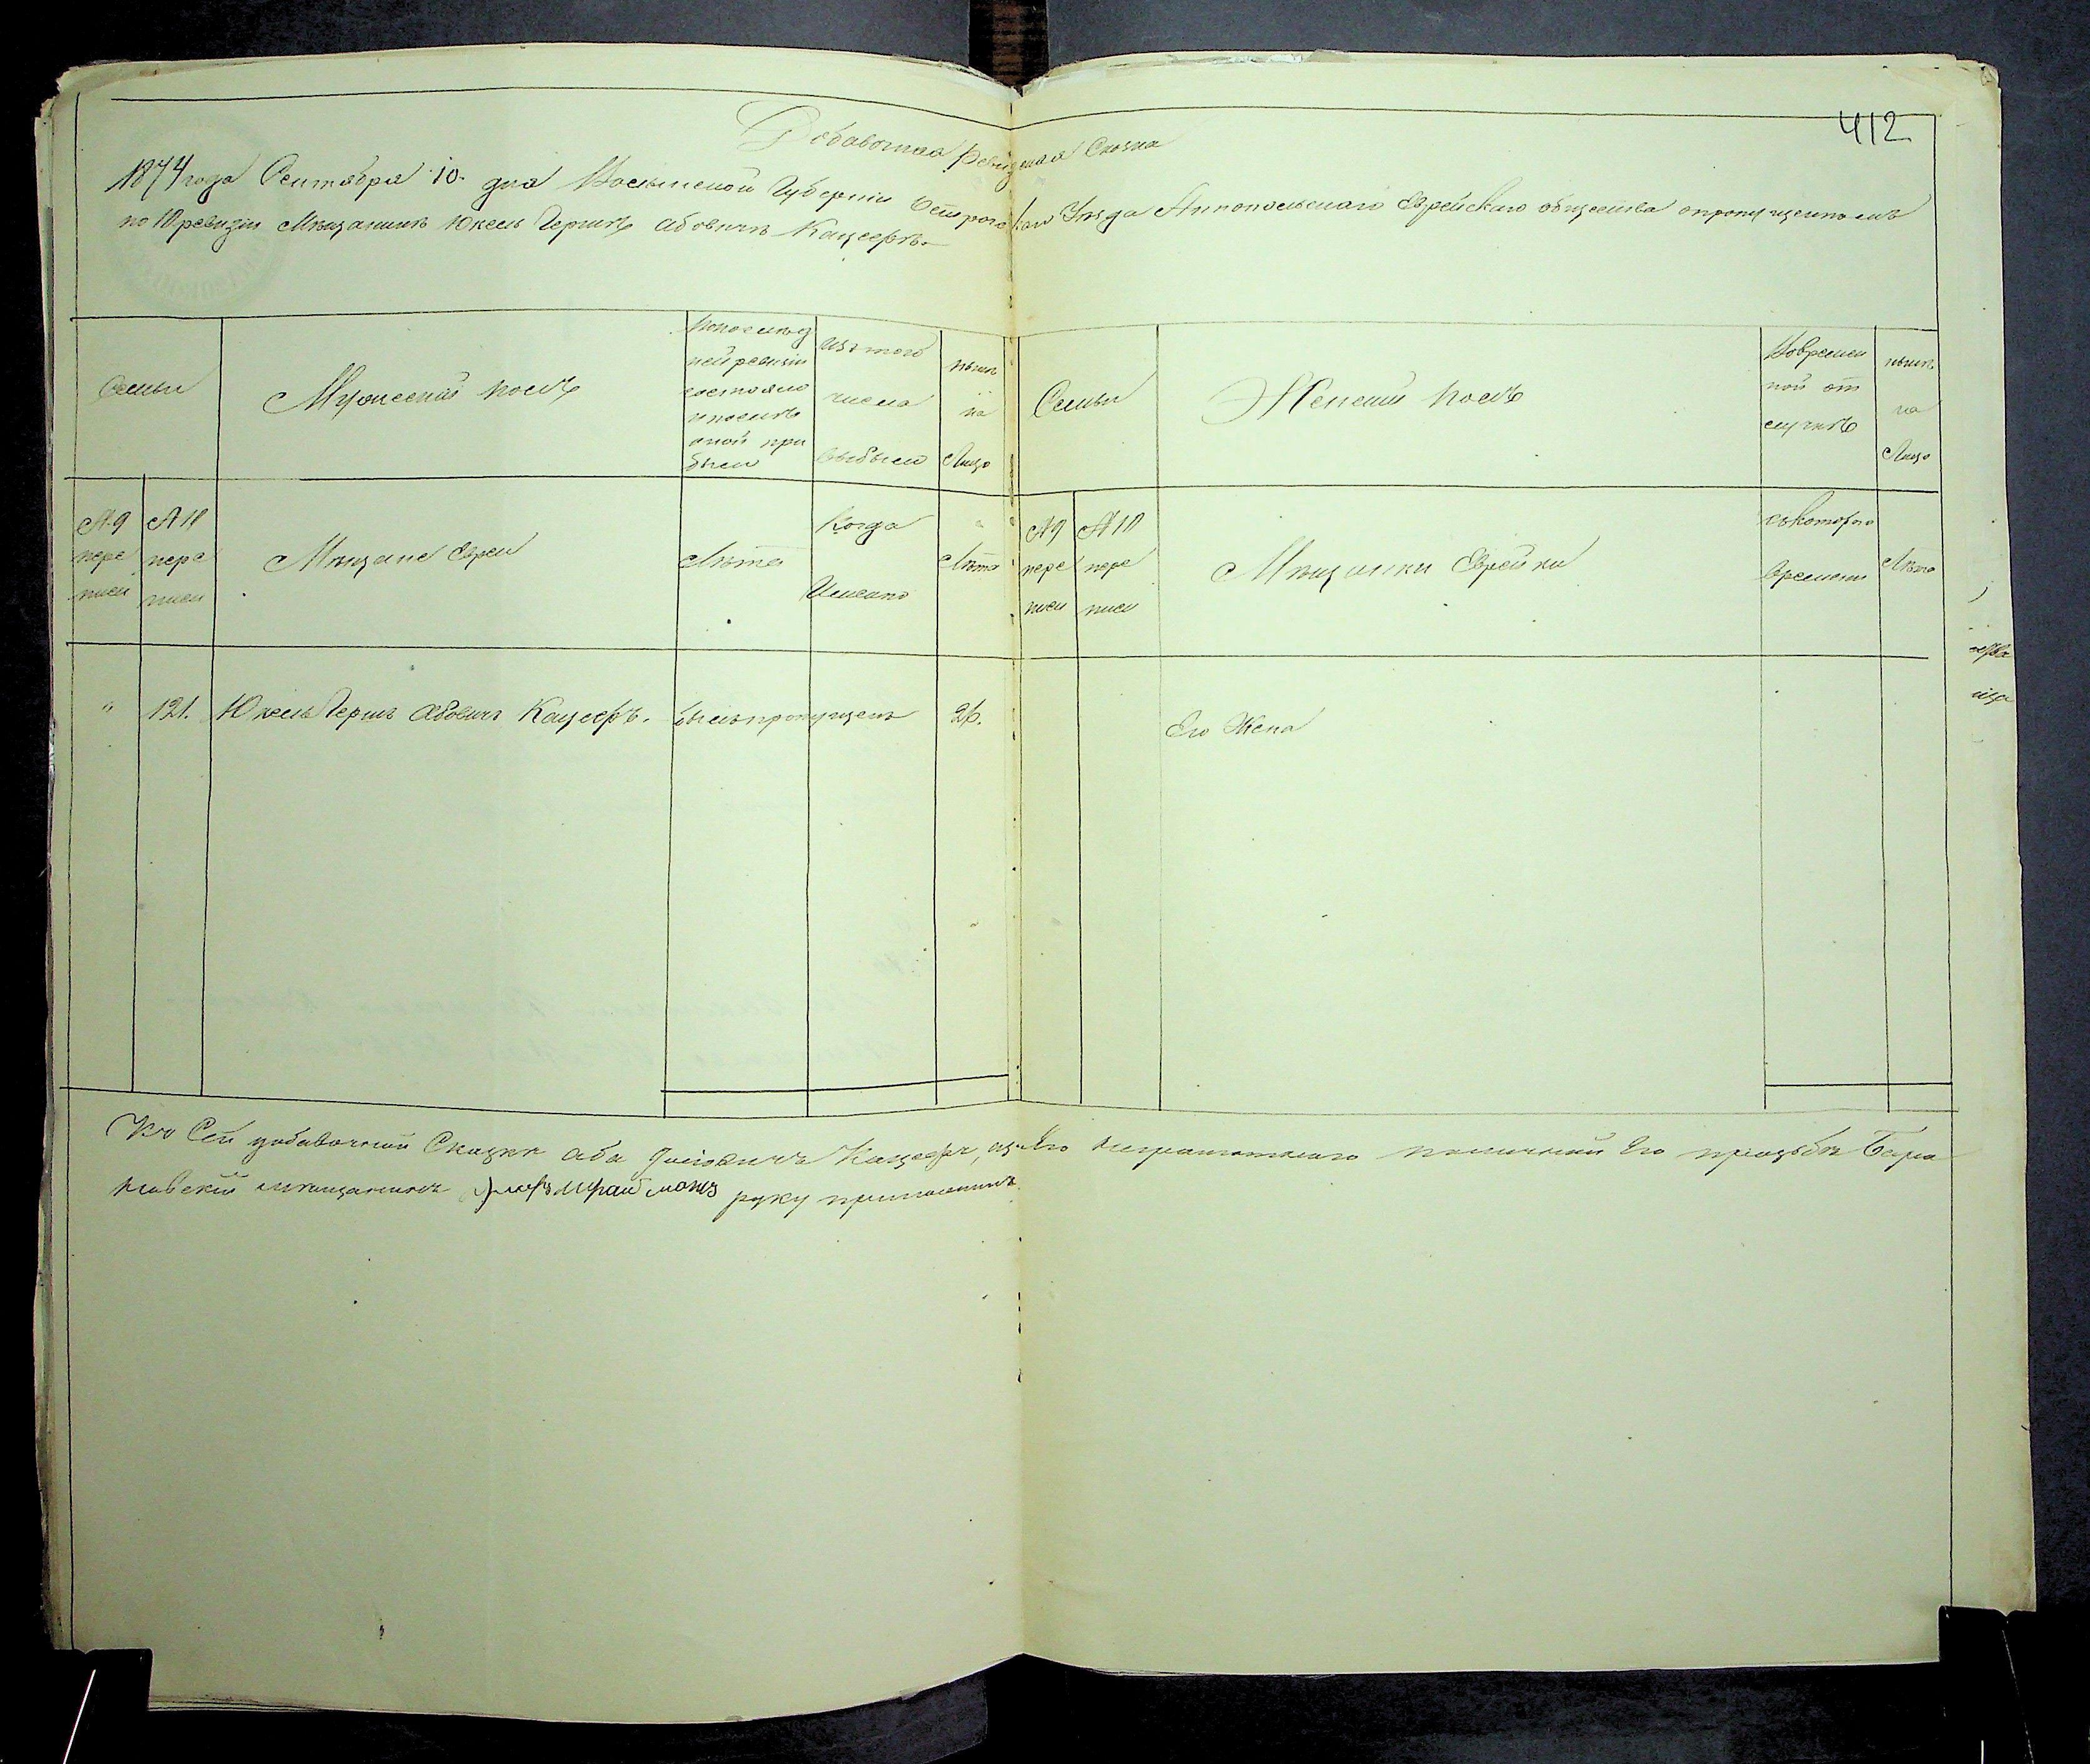 412
Добавочная Ревизская Сказка
1874 года Сентября 10 дня Волынской Губерніи Острогскаго Уезда Аннопольскаго Еврейскаго общества о пропущенномъ
по 10 ревизіи Мѣщанинѣ Юкель Гершъ Абовичъ Кацеефъ.
Семьи
Мужескій полъ
По послѣд
ней ревизіи
состояло
и послѣ
оной при
было
Изъ того
числа
выбыло
Нынѣ
на
Лицо
Семьи
Женскій полъ
Во времен
ной от
лучкѣ
нынѣ
на
Лицо
№ 9
пере
писи
№ 10
пере
писи
Мѣщане Евреи
Лѣта
Когда
Именно
Лѣта
№ 9
пере
писи
№ 10
пере
писи
Мѣщанки Еврейки
съ котораго
времени
Лѣта
" 121. Юкель Гершъ Абовичъ Кацеефъ. былъ пропущенъ 26.
Его Жена
Къ Сей добавочной Сказкѣ Аба Кацеефъ, а за Его неграматнаго по личной Его прозьбѣ Бара
новскій мѣщанинъ руку приложилъ